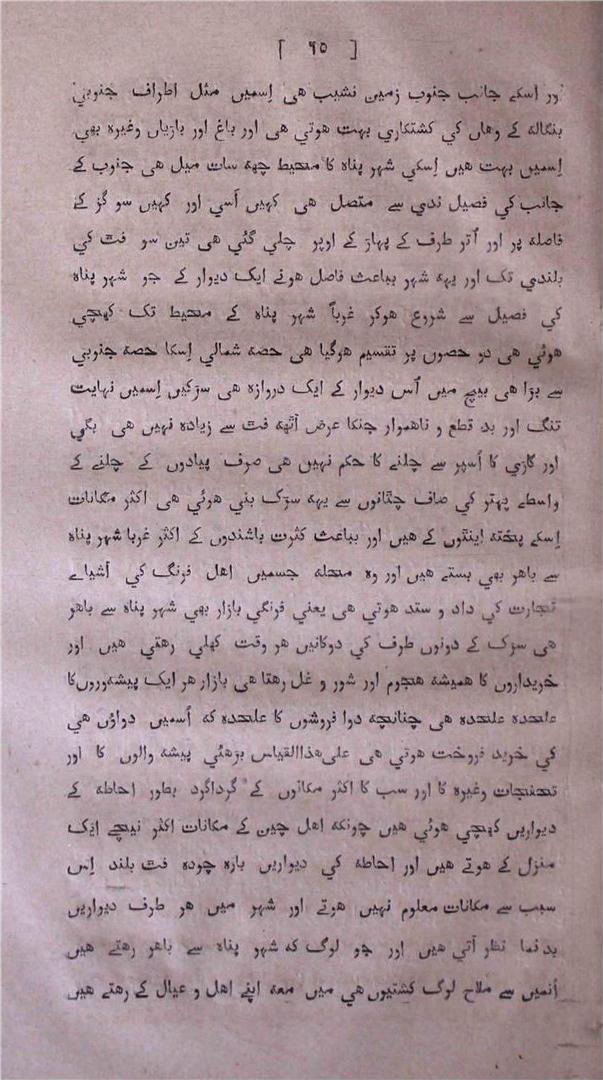 [ ٦٥ ]
اور اسکے جانب جنوب زمین نشیب هی اِسمیں مثل اطراف جنوبي
بنگاله کے وهاں کي کشتکاري بهت هوتي هی اور باغ اور بازیاں وغیره بهي
اِسمیں بهت هیں اِسکي شهر پناه کا محیط چهه سات میل هی جنوب کے
جانب کي فصیل ندي سے متصل هی کهیں اَسي اور کهیں سو گز کے
فاصله پر اور اُتر طرف کے پهاڑ کے اوپر چلي گئي هی تین سو فت کي
بلندي تک اور یهه شهر بباعث فاصل هونے ایک دیوار کے جو شهر پناه
کي فصیل سے شروع هوکر غرباً شهر پناه کے محیط تک کهچي
هوئي هی دو حصوں پر تقسیم هوگیا هی حصه شمالي اِسکا حصه جنوبي
سے بڑا هی بیچ میں اُس دیوار کے ایک دروازه هی سڑکیں اِسمیں نهایت
تنگ اور بد قطع و ناهموار جنکا عرض آتهه فت سے زیاده نهیں هی بگي
اور گاڑي کا اُسپر سے چلنے کا حکم نهیں هی صرف پیادوں کے چلنے کے
واسطے پهتر کي صاف چتانوں سے یهه سڑک بني هوئي هی اکثر مکانات
اِسکے پخته اینتوں کے هیں اور بباعث کثرت باشندوں کے اکثر غربا شهر پناه
سے باهر بهي بستے هیں اور وه محله جسمیں اهل فرنگ کي اشیاے
تجارت کي داد و ستد هوتي هی یعني فرنگي بازار بهي شهر پناه سے باهر
هی سڑک کے دونوں طرف کي دوکانیں هر وقت کهلي رهتي هیں اور
خریداروں کا همیشه هجوم اور شور و غل رهتا هی بازار هر ایک پیشهوروں کا
علحده علحده هی چنانچه دوا فروشوں کا علحده که اُسمیں دواؤں هي
کي خرید فروخت هوتي هی علی هذاالقیاس بڑهئي پیشه والوں کا اور
تحفجات وغیره کا اور سب کا اکثر مکانوں کے گرداگرد بطور احاطه کے
دیواریں کهچي هوئي هیں چونکه اهل چین کے مکانات اکثر نیچے ایک
منزل کے هوتے هیں اور احاطه کي دیواریں باره چوده فت بلند اِس
سبب سے مکانات معلوم نهیں هوتے اور شهر میں هر طرف دیواریں
بدنما نظر آتي هیں اور جو لوگ که شهر پناه سے باهر رهتے هیں
اُنمیں سے ملاح لوگ کشتیوں هي میں معه اپنے اهل و عیال کے رهتے هیں